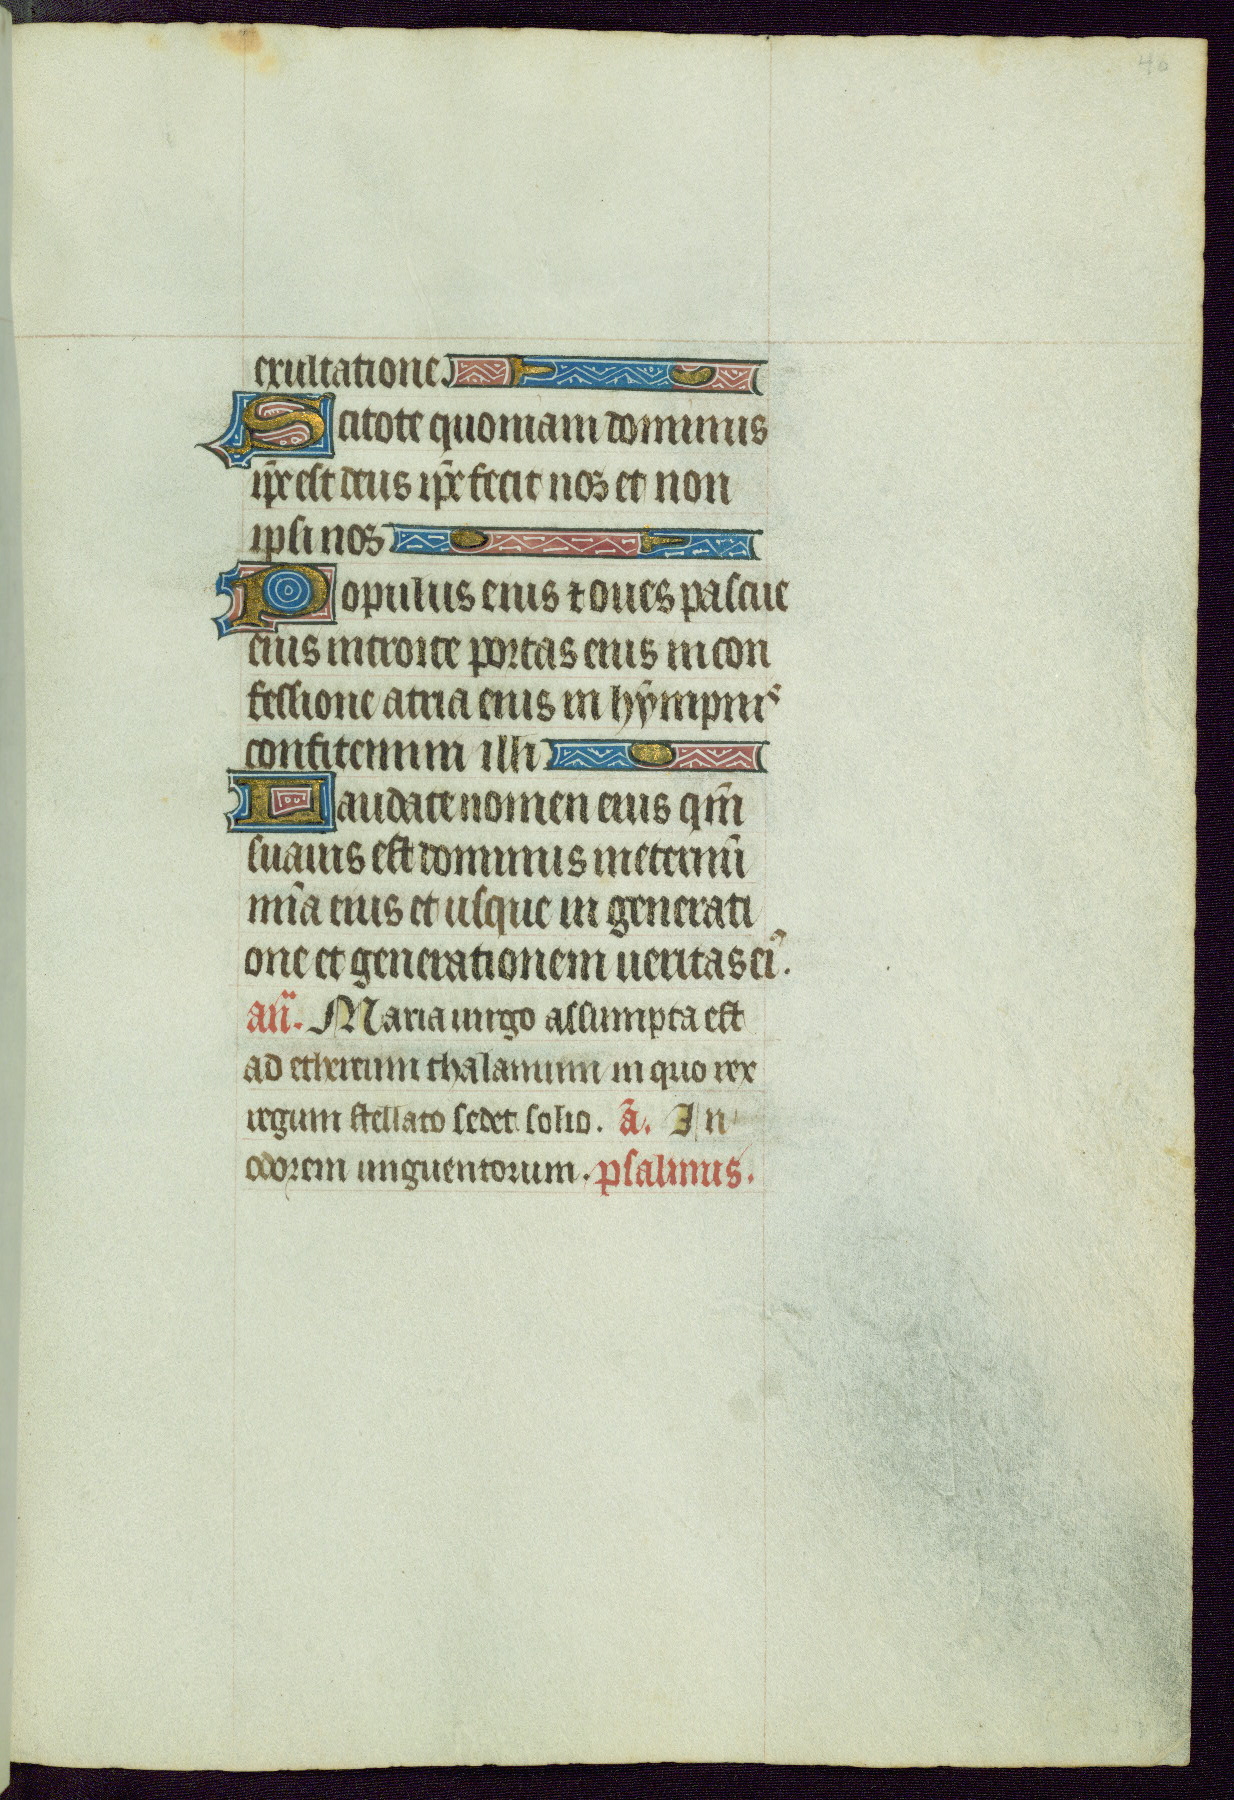 40
exultatione.
Scitote quoniam dominus
ip̄e est deus ip̄e fecit nos et non
ipsi nos
Populus eius ⁊ oues pascue
eius introite portas eius in con
fessione atria eius in hẏmpnis
confitemini illi
Laudate nomen eius qm̄
suauis est dominus in eternū
mīa eius et usque in generati
one et generationem ueritas ei᾿.
an̄. Maria uirgo assumpta est
ad ethereum thalamum in quo rex
regum stellato sedet solio. ā. In
odorem unguentorum. psalmus.